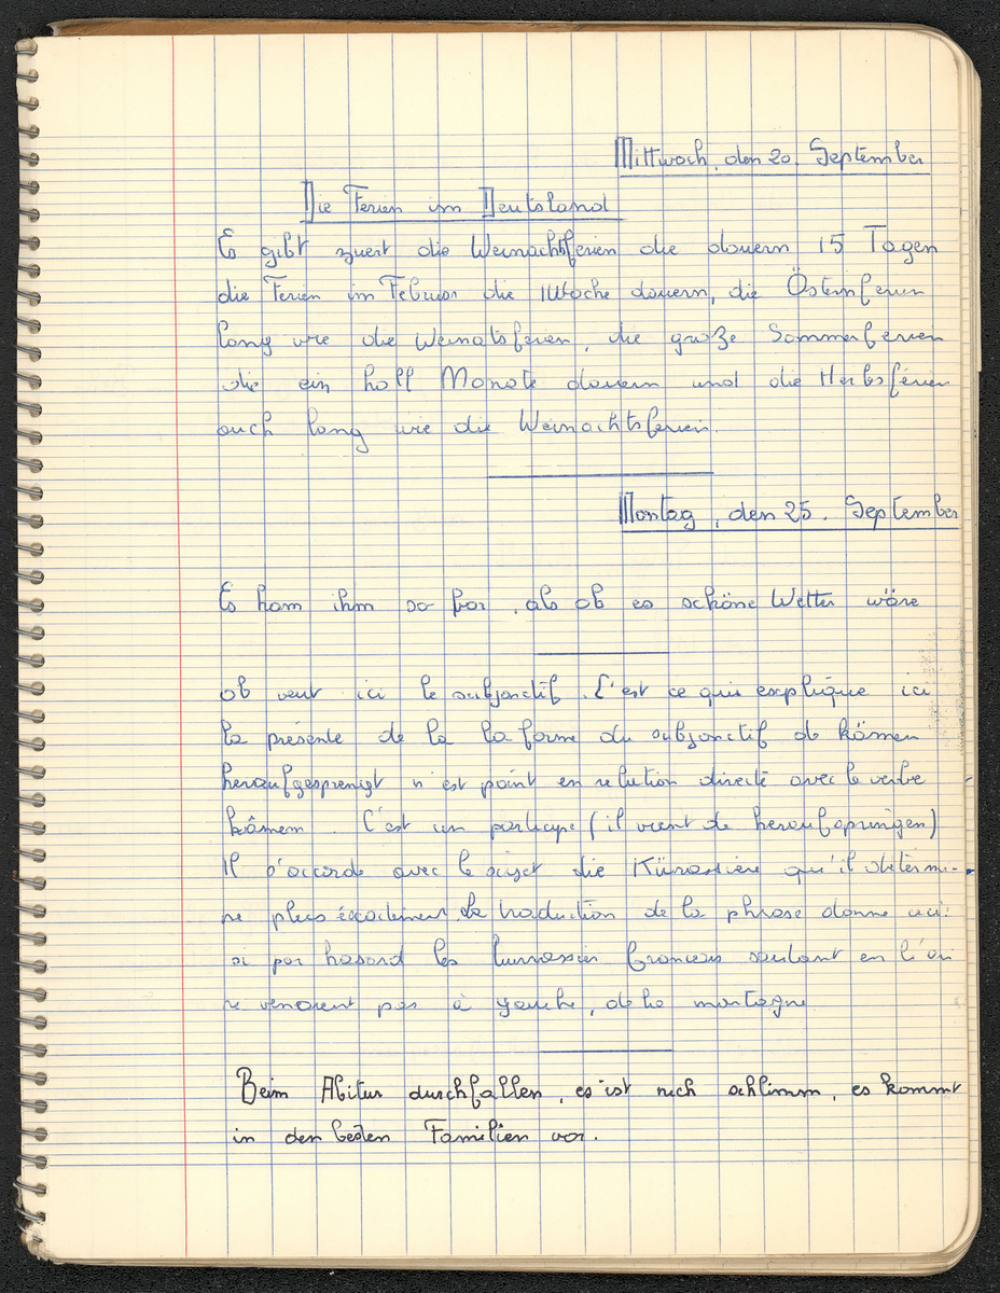 Mittwoch, den 20. September
Die Ferien im Deutsland
Es gibt zuert die Weinachtsferien die douern 15 Tagen
die Ferien im Februar die 1 Woche dauern, die Östernferien
lang wie die Weinatsferien, die große Sommerferien
die ein half Monate dauern und die Herbsférien
auch lang wie die Weinachtsferien.
Montag, den 25. September
Es kam ihm so vor, als ob es schöne Wetter wäre
ob veut ici le subjonctif. C'est ce qui explique ici
la présente de la la forme du subjonctif ob kämen
heraufgesprengt n'est point en relation directe avec le verbe
kämem. C'est un participe (il vient de heraufspringen)
Il s'accorde avec le sujet die Kürassiere qu'il détermi-
ne plus éxactement. La traduction de la phrase donne ici:
si par hasard les cuirassier français sautant en l'air
ne venaient pas à gauche, de la montagne
Beim Abitur durchfallen, es ist nich schlimm, es kommt
in den besten Familien vor.